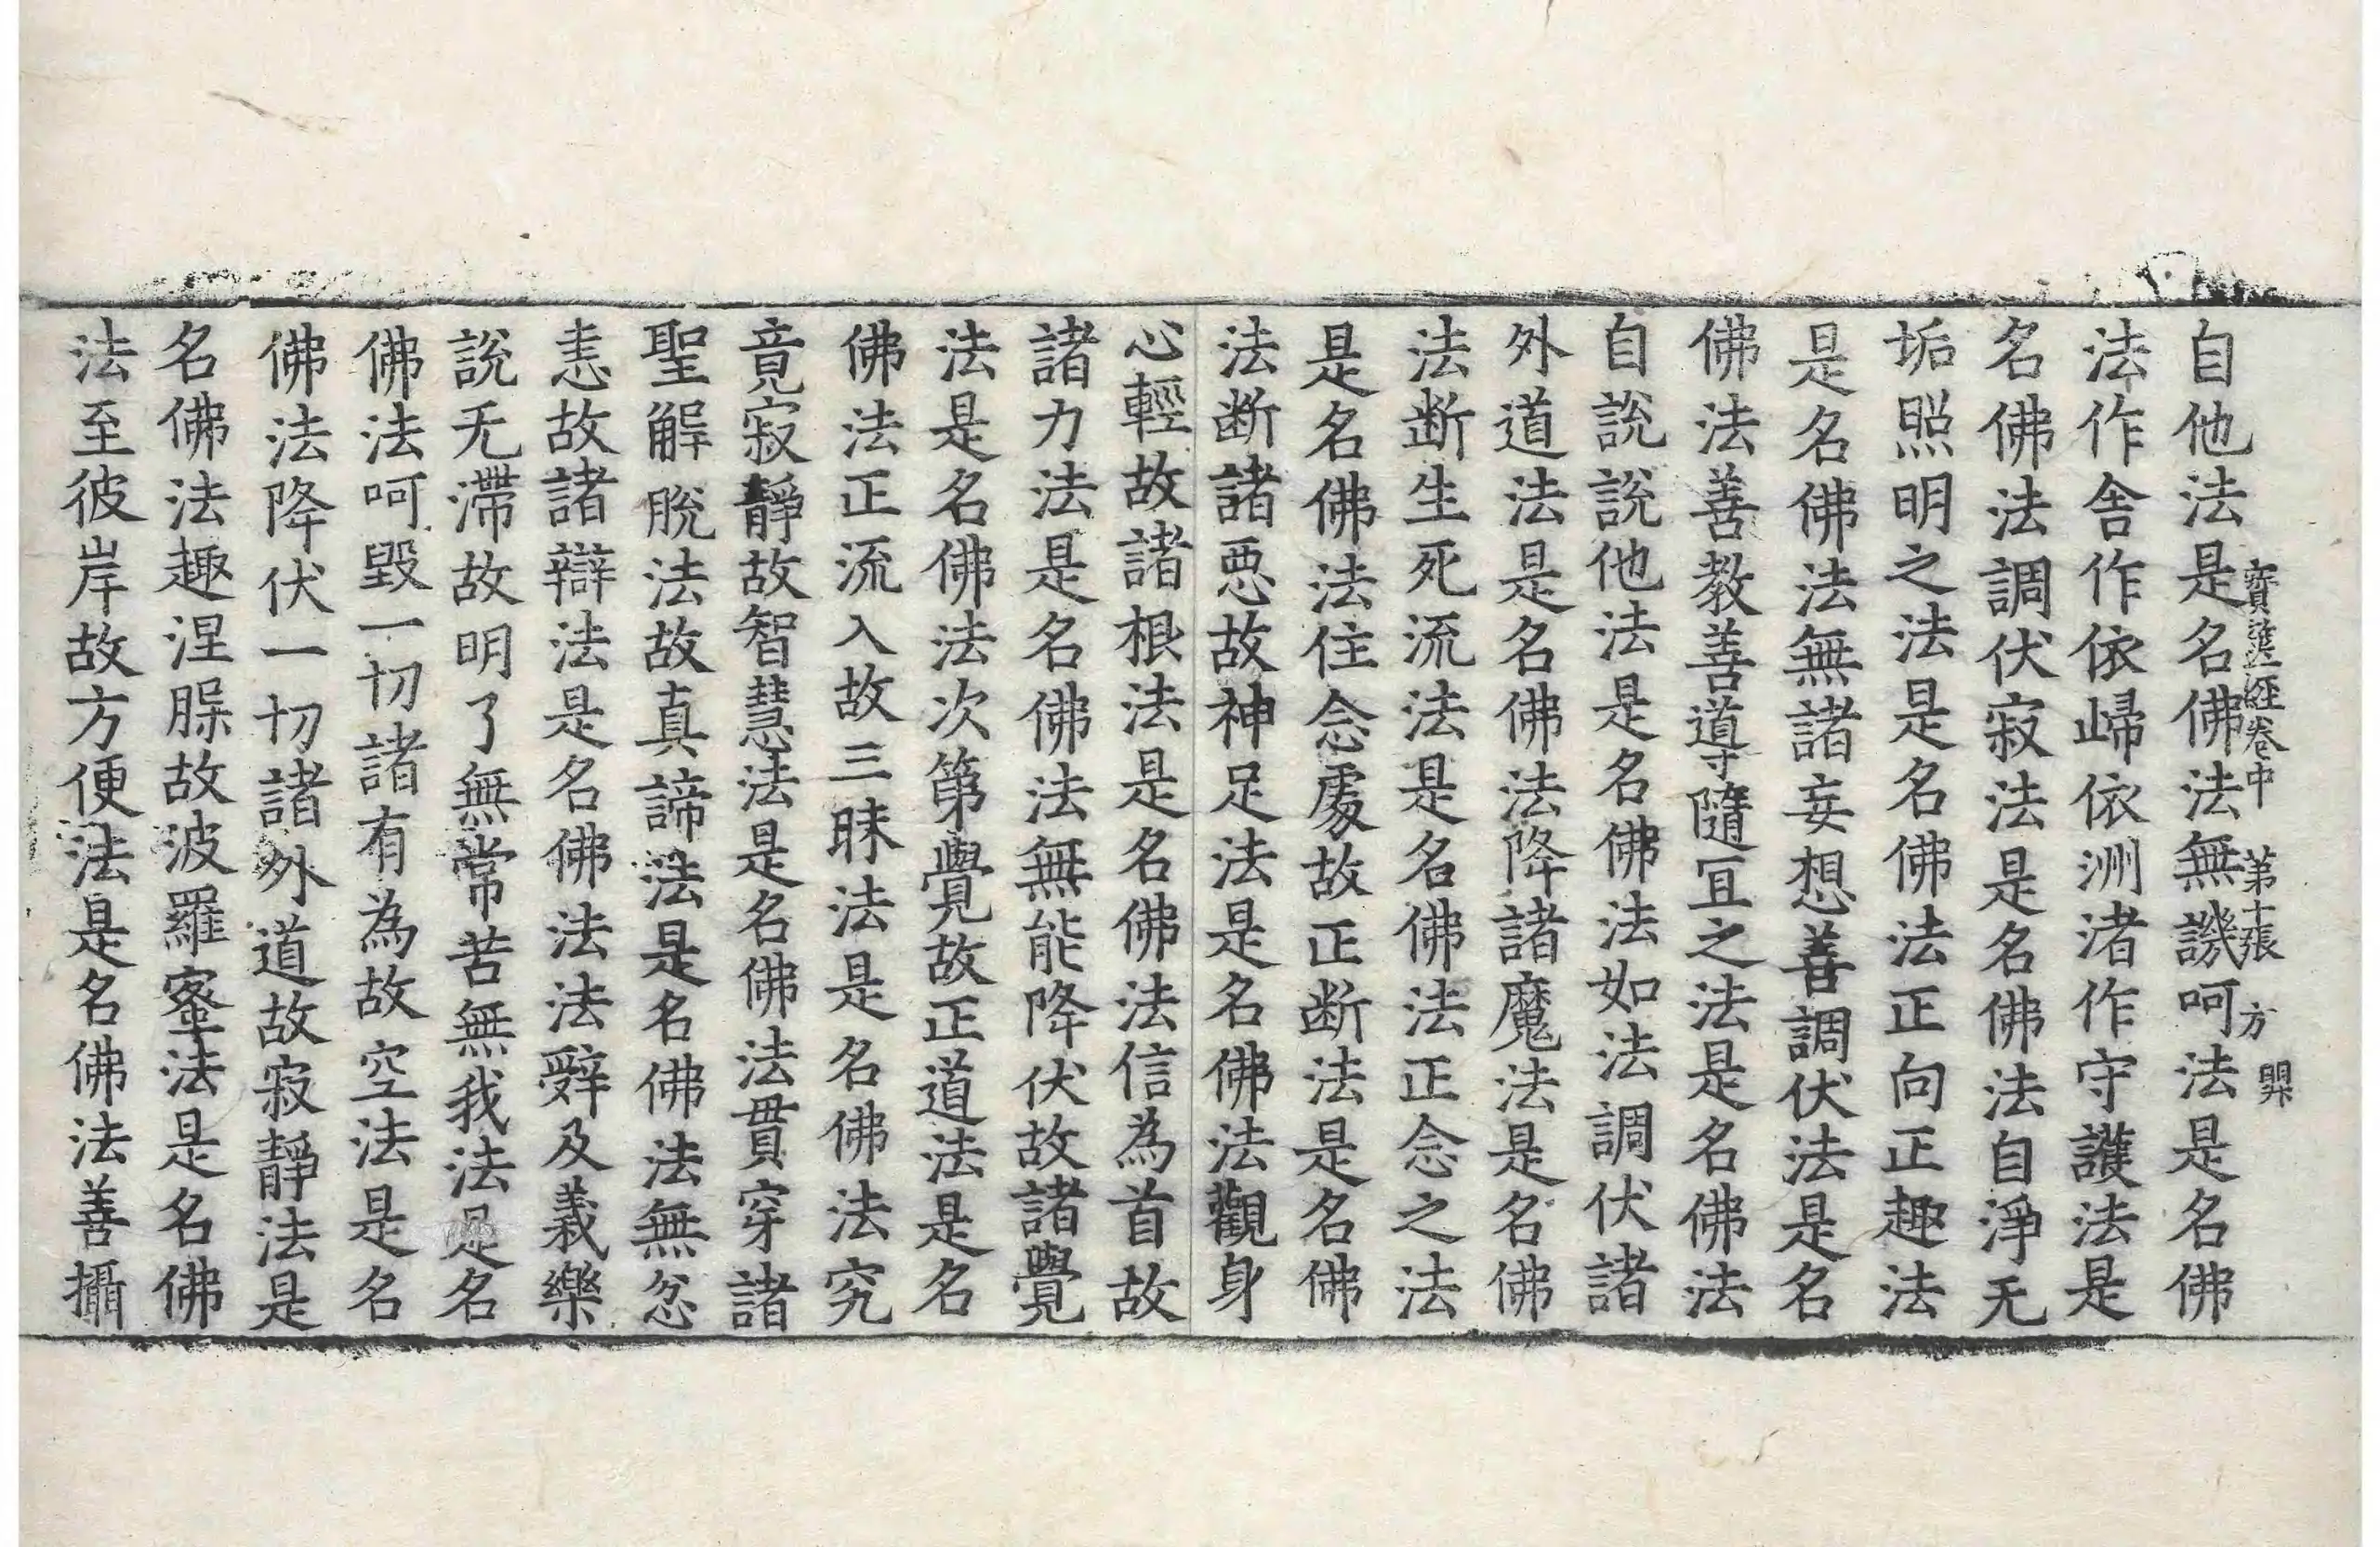 自他法是名佛法無譏呵法是名佛
寶篋經卷中 第十張 方 羿
法作舍作依歸依洲渚作守護法是
名佛法調伏寂法是名佛法自淨无
垢照明之法是名佛法正向正趣法
是名佛法無諸妄想善調伏法是名
佛法善教善導隨冝之法是名佛法
自說說他法是名佛法如法調伏諸
外道法是名佛法降諸魔法是名佛
法断生死流法是名佛法正念之法
是名佛法住念處故正断法是名佛
法断諸惡故神足法是名佛法觀身
心輕故諸根法是名佛法信為首故
諸力法是名佛法無能降伏故諸覺
法是名佛法次第覺故正道法是名
佛法正流入故三昧法是名佛法究
竟寂靜故智慧法是名佛法貫穿諸
聖解脫法故真諦法是名佛法無忿
恚故諸辯法是名佛法法辞及義樂
說无滯故明了無常苦無我法是名
佛法呵毀一切諸有為故空法是名
佛法降伏一切諸外道故寂靜法是
名佛法趣涅槃故波羅蜜法是名佛
法至彼岸故方便法是名佛法善攝